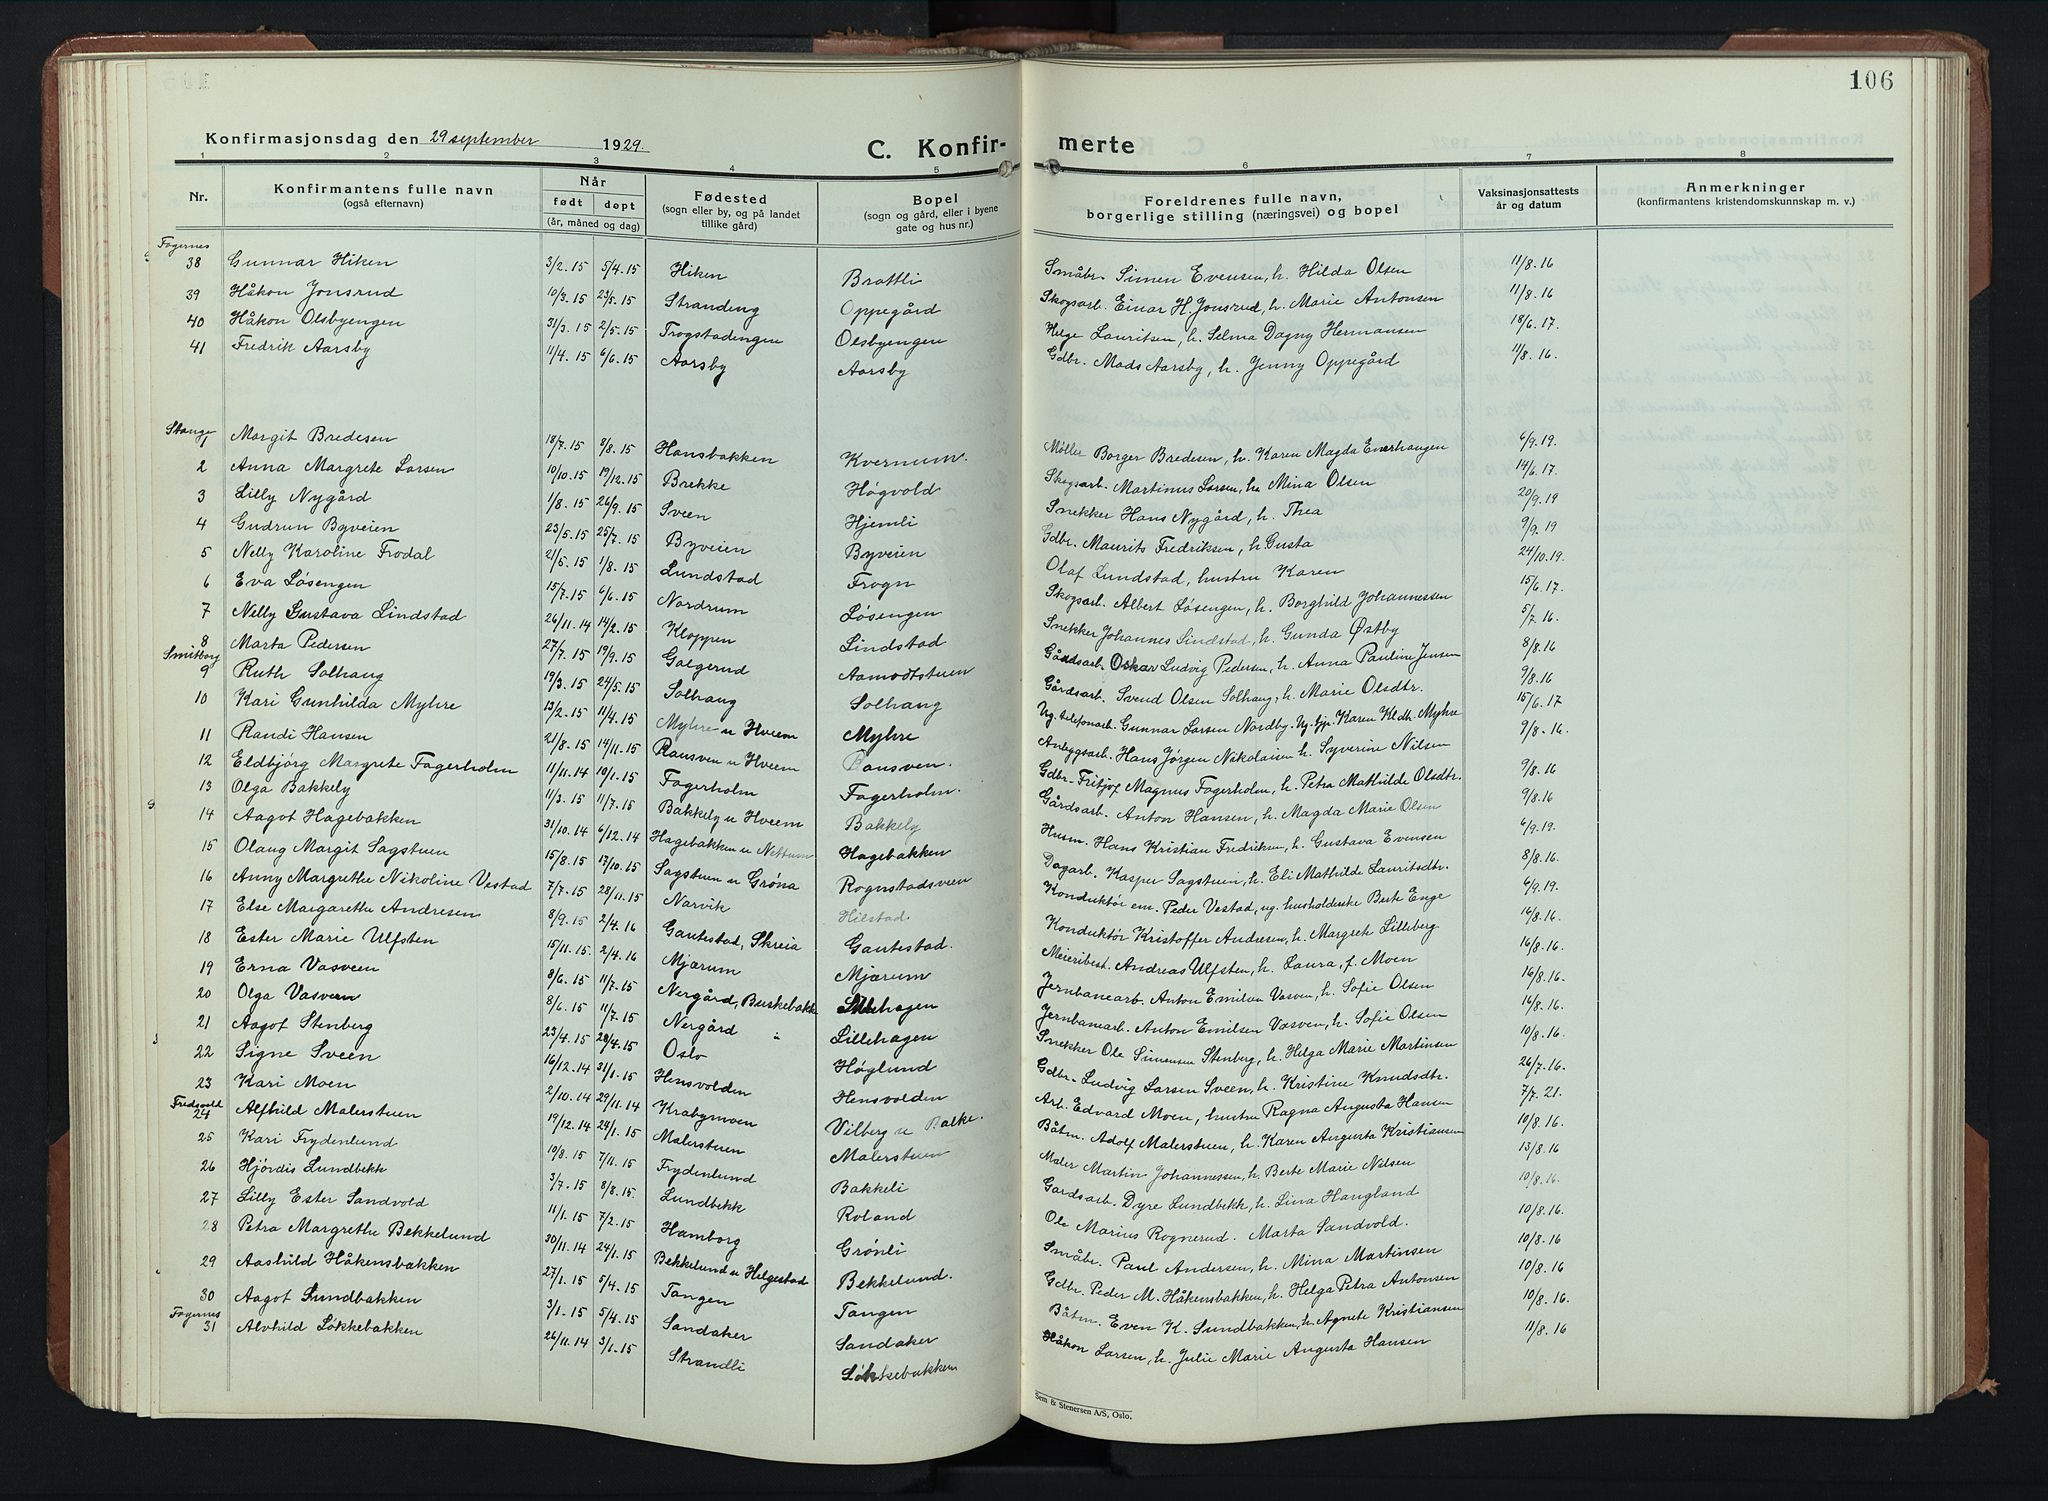 106
Konfirmasjonsdag den 29 september 1929.
C. Konfir- merte
1 2 3 4 5 6 7 8
Nr.
Konfirmantens fulle navn (også efternavn)
Når født døpt (år, måned og dag)
Fødested (sogn eller by, og på landet tillike gård)
Bopel (sogn og gård, eller i byene gate og hus nr.)
Foreldrenes fulle navn, borgerlige stilling (næringsvei) og bopel
Vaksinasjonsattests år og datum
Anmerkninger (konfirmantens kristendomskunnskap m. v.)
Fagernes
38 Gunnar Hiken 3/2.15 5/4.15 Hiken Brattli Småbr. Simen Evensen, h. Hilda Olsen 11/8.16
39 Håkon Jonsrud 10/3.15 23/5.15 Strandeng Oppegård Skogsarb. Einar H. Jonsrud, h. Marie Antonsen 11/8.16
40 Håkon Olsbyengen 31/3.15 2/5.15 Trogstadengen Olsbyengen Helge Lauritsen, h. Selma Dagny Hermansen 18/6.17.
41 Fredrik Aarsby 11/4.15 6/6.15 Aarsby Aarsby Gdbr. Mads Aarsby, h. Jenny Oppegård 11/8.16.
Stange
1 Margit Bredesen 18/7.15 8/8.15 Hansbakken Kvernum. Møller Borger Bredesen, h. Karen Magda Enerhaugen 6/9.19.
2 Anna Margrete Larsen 10/10.15 19/12.15 Brekke Høgvold Skogsarb. Martinus Larsen, h. Mina Olsen 14/6.17.
3 Lilly Nygård 1/8.15 26/9.15 Sveen Hjemli Snekker Hans Nygård, h. Thea 20/9.19
4 Gudrun Byveien 23/5.15 25/7.15 Byveien Byveien Gdbr. Maurits Fredriksen, h. Gusta 9/9.19
5 Nelly Karoline Frodal 21/5.15 1/8.15 Lundstad Frogn Olaf Lundstad, hustru Karen 24/10.19.
6 Eva Løsengen 15/7.15 6/6.15 Nordrum Løsengen Skogsarb. Albert Løsengen, h. Borghild Johannessen 15/6.17.
7 Nelly Gustava Lindstad 26/11.14 14/2.15 Kloppen Lindstad Snekker Johannes Lindstad, h. Gunda Østby 5/7.16.
8 Marta Pedersen 27/7.15 19/9.15 Galgerud Aamodtstuen Gårdsarb. Oskar Ludvig Pedersen, h. Anna Pauline Jensen 8/8.16
Smitborg
9 Ruth Solhaug 19/3.15 24/5.15 Solhaug Solhaug Gårdsarb. Svend Olsen Solhaug, h. Marie Olsdtr. 9/8.16
10 Kari Gunhilda Myhre 13/2.15 11/4.15 Myhre u Hveem Myhre Ug. telefonarb. Gunnar Larsen Nordby. Ug. pje. Karen Kldtr. Myhre 15/6.17
11 Randi Hansen 21/8.15 14/11.15 Ransven u Hveem Ransven. Anleggsarb. Hans Jørgen Nikolaisen h. Syverine Nilsen 9/8.16.
12 Eldbjörg Margrete Fagerholm 11/11.14 10/1.15 Fagerholm Fagerholm. Gdbr. Fritjof Magnus Fagerholm, h. Petra Mathilde Olsdtr. 9/8.16
13 Olga Bakkely 11/3.15 11/7.15 Bakkely u Hveem Bakkely Gårdsarb. Anton Hansen, h. Magda Marie Olsen 9/8.16
14 Aagot Hagebakken 31/10.14 6/12.14 Hagebakken u Nettum Hagebakken Husm. Hans Kristian Fredriksen, h. Gustava Evensen 6/9.19.
15 Olaug Margit Sagstuen 15/8.15 17/10.15 Sagstuen u Grøna Rognstadsveen Dagarb. Kasper Sagstuen, h. Eli Mathilde Lauritsdtr. 8/8.16.
16 Anny Margrethe Nikoline Vestad 7/7.15 28/11.15 Narvik Hilstad. Konduktør em. Peder Vestad, ug. husholderske Berte Enge 6/9.19.
17 Else Margarethe Andresen 8/9.15 2/4.16 Gautestad, Skreia Gautestad. Konduktör Kristoffer Andresen, h. Margrete Lilleberg 16/8.16.
18 Ester Marie Ulfsten 15/11.15. 2/4.16 Mjærum Mjærum Meieribest. Andreas Ulfsten, h. Laura, f. Moen 16/8.16.
19 Erna Vasveen 8/6.15 11/7.15 Nergård, Buskebakk Lillehagen Jernbanearb. Anton Emilsen Vasven, h. Sofie Olsen 16/8.16.
20 Olga Vasveen 8/6.15 11/7.15 Nergård " Lillehagen Jernbanearb. Anton Emilsen Vasven, h. Sofie Olsen 16/8.16
21 Aagot Stenberg 23/4.15 28/4.15 Oslo Høglund Snekker Ole Simensen Stenberg, h. Helga Marie Martinsen 10/8.16.
22 Signe Sveen 16/12.14 31/1.15 Hensvolden Hensvolden Gdbr. Ludvig Larsen Sveen, h. Kristine Knudsdtr. 26/7.16.
23 Kari Moen 2/10.14 29/11.14 Krabymoen Vilberg u Balke. Arb. Edvard Moen, hustru Ragna Augusta Hansen 7/7.21.
Fredsvold
24 Alfhild Malerstuen 19/12.14 24/1.15 Malerstuen Malerstuen Båtm. Adolf Malerstuen, h. Karen Augusta Kristiansen 10/8.16.
25 Kari Frydenlund 10/8.15 7/11.15 Frydenlund Bakkeli Maler Martin Johannessen, h. Berte Marie Nilsen 13/8.16
26 Hjördis Lundbekk 3/7.15 8/8.15. Lundbekk Roland Gardsarb. Dyre Lundbekk, h. Lina Haugland 10/8.16.
27 Lilly Ester Sandvold 11/1.15 7/2.15 Hamborg Grønli Ole Marius Rognerud. Marta Sandvold. 10/8.16.
28 Petra Margrethe Bekkelund 30/11.14 24/1.15 Bekkelund u Helgestad Bekkelund. Småbr. Paul Andersen, h. Mina Martinsen 10/8.16
29 Aashild Håkensbakken 27/1.15 5/4.15 Tangen Tangen Gdbr. Peder M. Håkensbakken, h. Helga Petra Antonsen 10/8.16
30 Aagot Sundbakken 3/1.15 5/4.15 Sandaker Sandaker Båtm. Even K. Sundbakken, h. Agnete Kristiansen 10/8.16.
Fagernes
31 Alvhild Løkkebakken 26/11.14 3/1.15 Strandli Løkkebakken Håkon Larsen, h. Julie Marie Augusta Hansen 11/8.16
Sem & Stenersen A/S, Oslo.